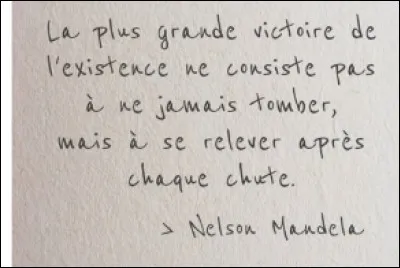 La plus grande victoire de
l'existence ne consiste pas
à ne jamais tomber,
mais à se relever après
chaque chute.
> Nelson Mandela